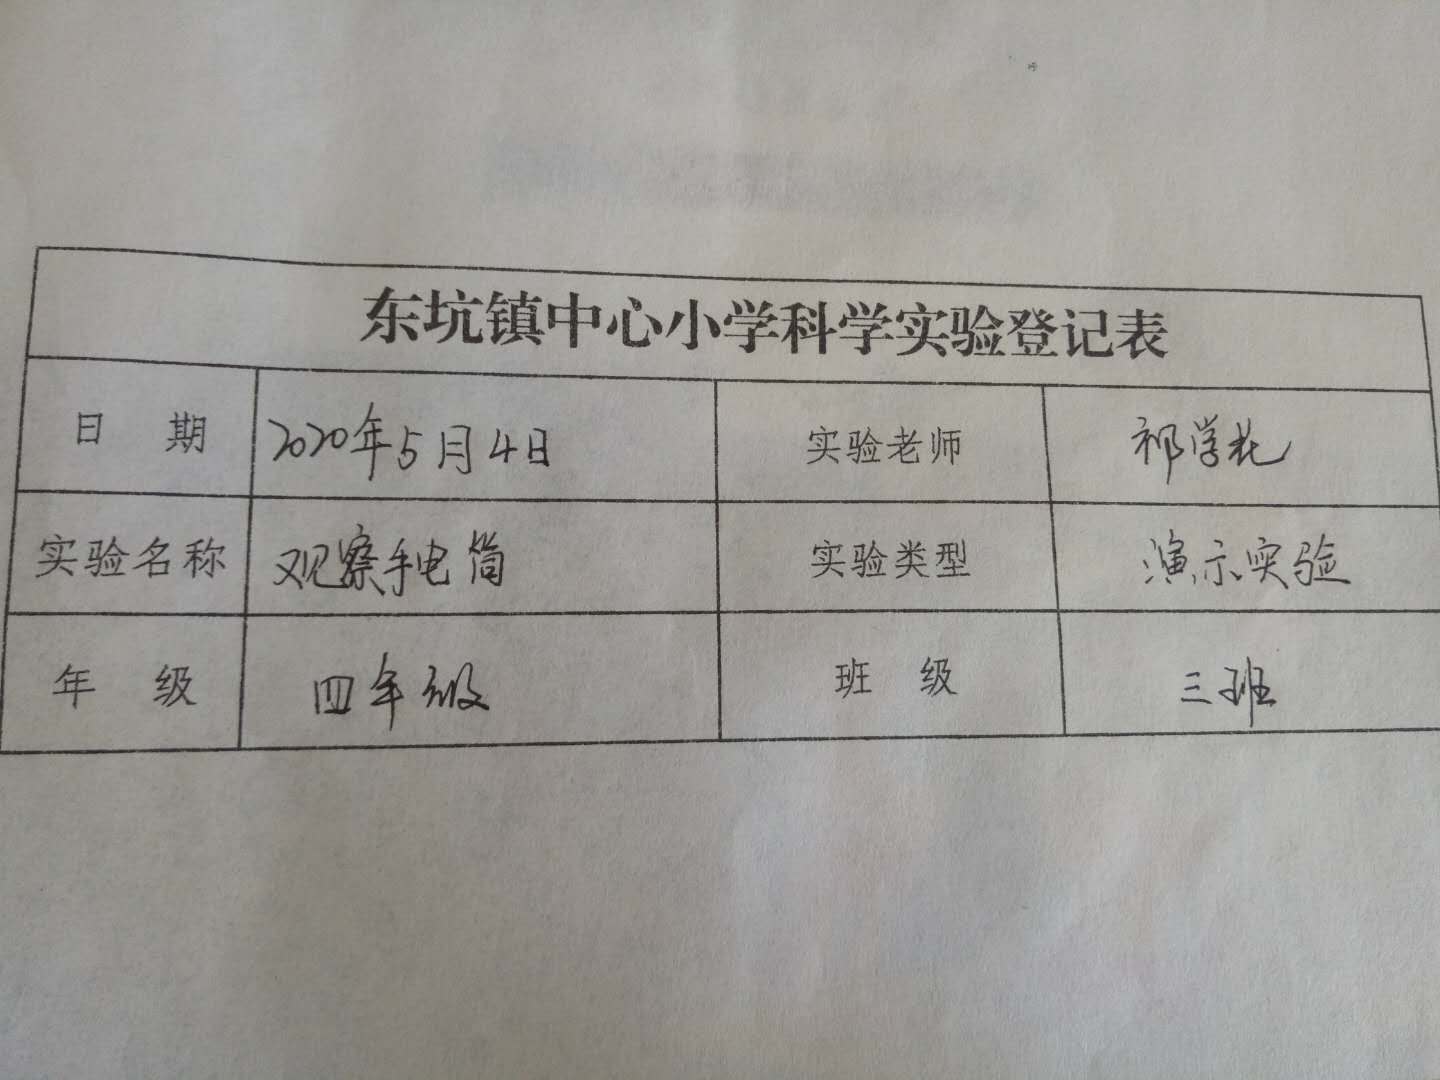 东坑镇中心小学科学实验登记表
日 期 2020年5月4日 实验老师 祁学礼
实验名称 观察手电筒 实验类型 演示实验
年 级 四年级 班 级 三班